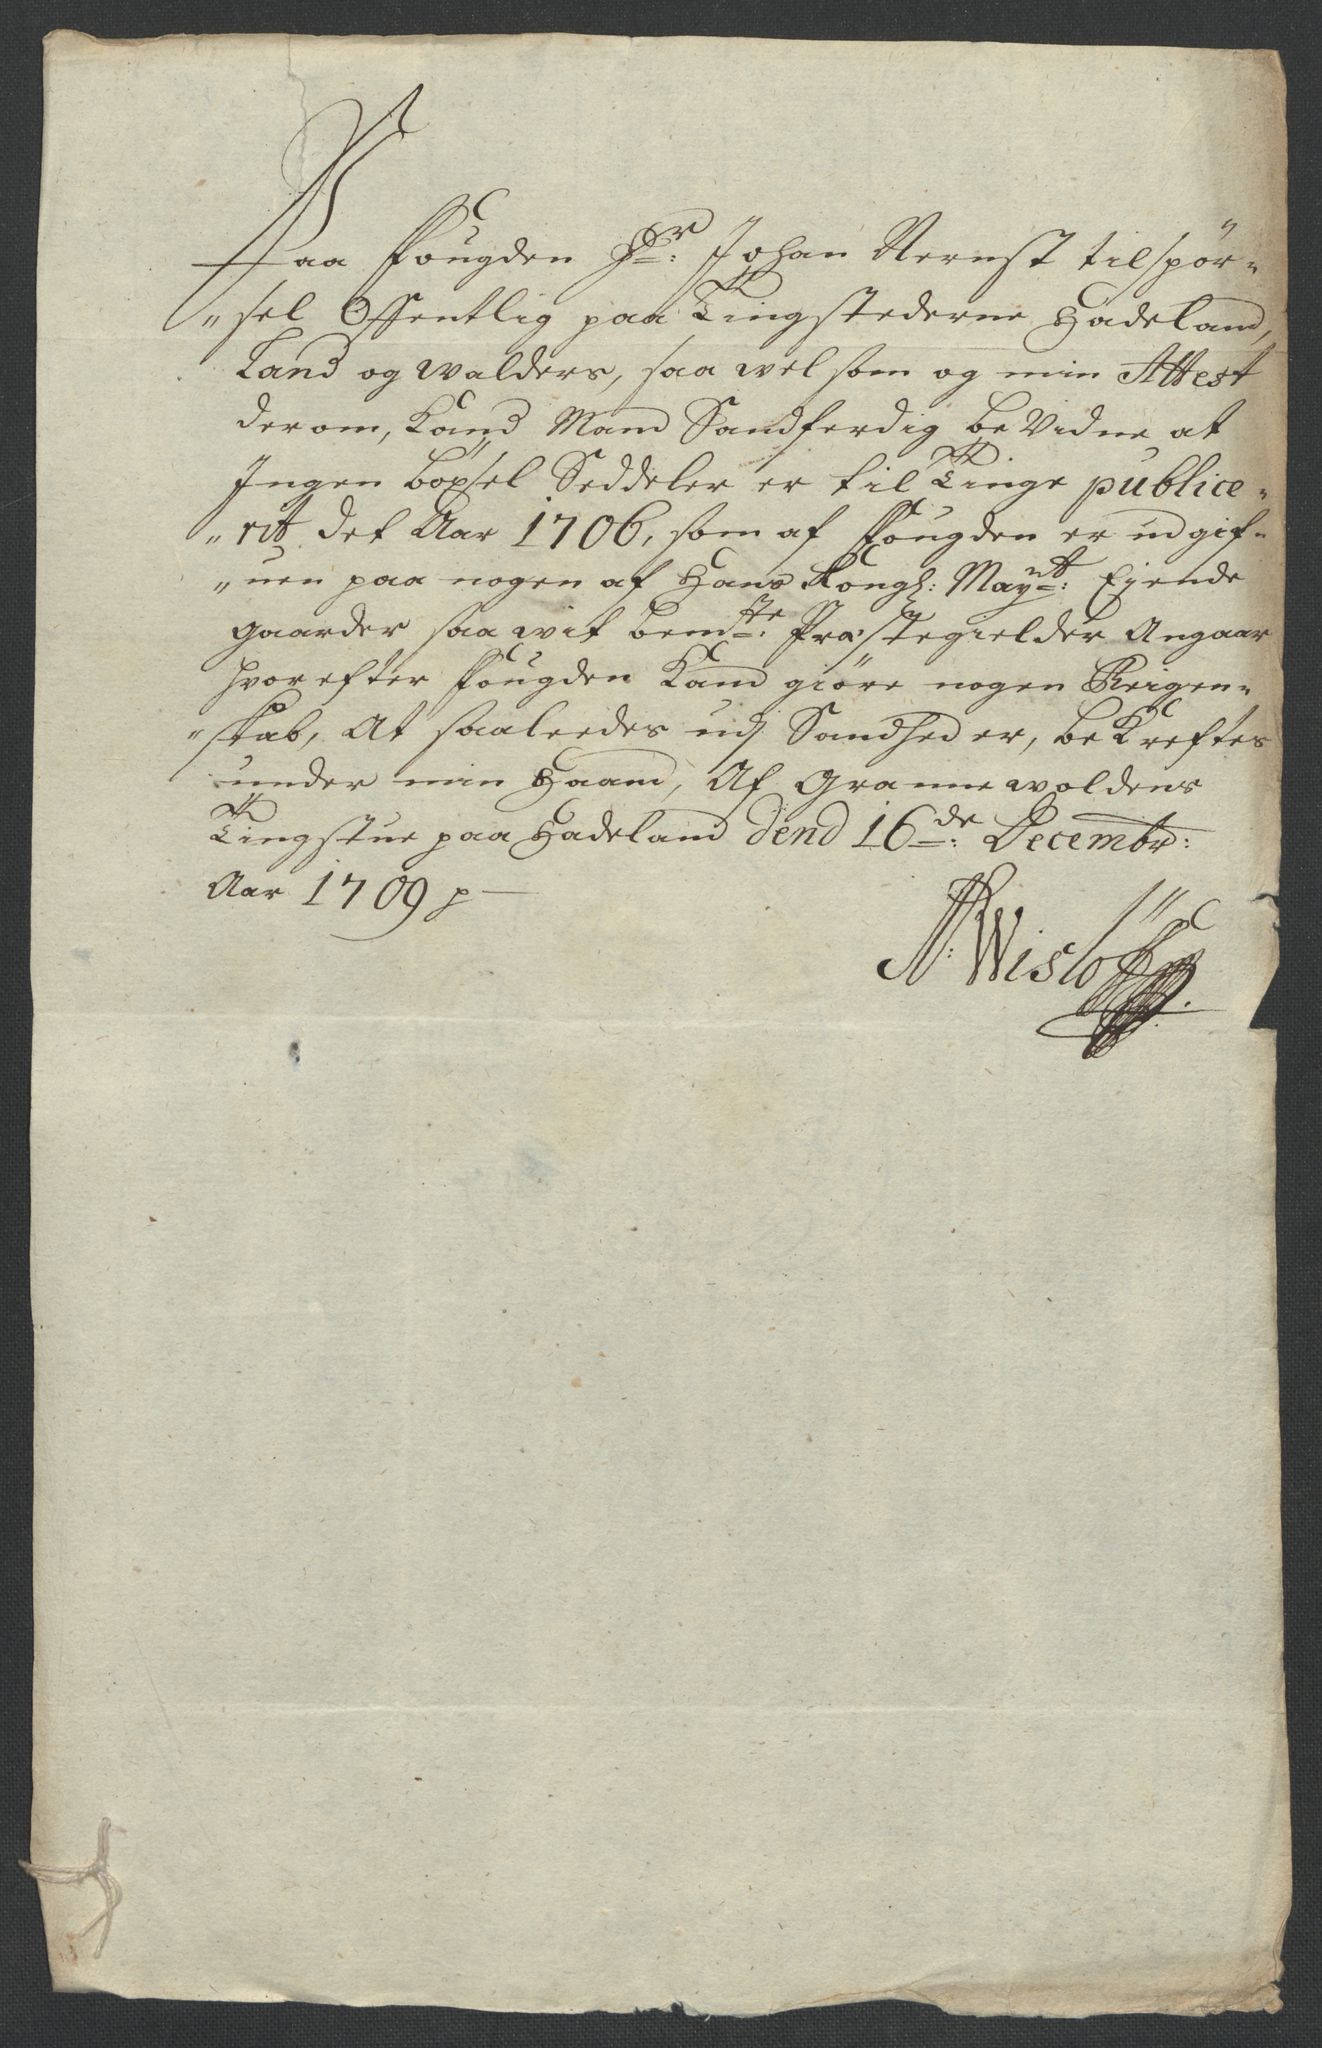 Paa Fougden Hr: Johan Nernst tilspør-
"sel Offentlig paa Tingstederne Hadeland,
Land og walders, saa vel som og min Attest
derom, Kand Mand Sandferdig beVidne at
Ingen böxsel Seddeler er til Tinge publice-
"rit det Aar 1706, som af Fougden er udgif-
"uen paa nogen af Hans Kongl: Mayt: Eiende
gaarder saa wit bemte: Præstegielder Angaar
hvorefter Fougden Kand giöre nogen Reigen-
"skab, At saaleedes udj Sandhed er, beKreftes
under min Haand, Af Grannewoldens
Tingstue paa Hadeland dend 16de: Decembr:
Aar 1709 p
N: Wislöff